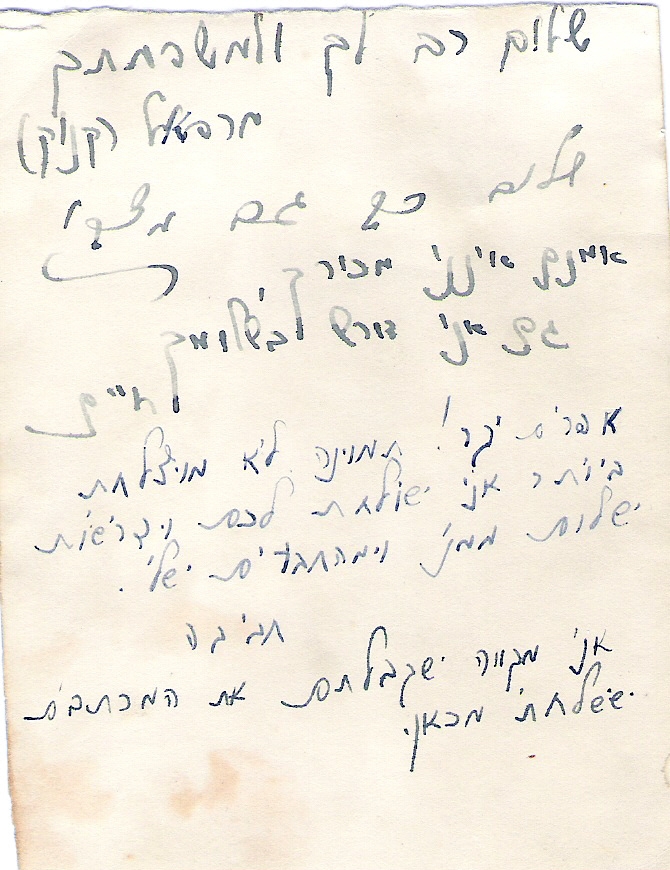 שלום רב לך ולמשפחתך
מרפאל
שלום רב גם
אמנם אינני מכירך
גם אני דורש בשלומך
חיים
אפרים יקר! תמונה לא מוצלחת
ביותר אני שולחת לכם ודרישות
שלום ממני ומהחברים שלי.
חביבה
אני מקווה שקבלתם את המכתבים
ששלחתי מכאן.